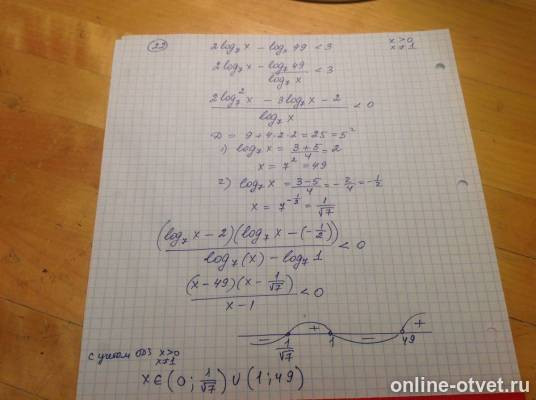 22
2log₇x − logₓ 49 < 3
x > 0
x ≠ 1
2log₇x − log₇49/log₇x < 3
(2log₇²x − 3log₇x − 2)/log₇x < 0
D = 9 + 4·2·2 = 25 = 5²
1) log₇x = (3+5)/4 = 2
x = 7² = 49
2) log₇x = (3−5)/4 = −2/4 = −1/2
x = 7^(−1/2) = 1/√7
(log₇x − 2)(log₇x − (−1/2))/(log₇(x) − log₇1) < 0
(x − 49)(x − 1/√7)/(x − 1) < 0
− + − +
1/√7 1 49
с учетом ОДЗ x>0
x≠1
x ∈ (0; 1/√7) ∪ (1; 49)
online-otvet.ru